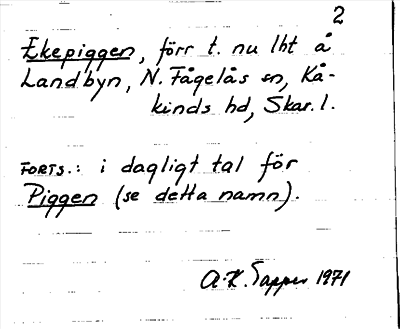 2
Ekepiggen, förr t. nu lht å
Landbyn, N. Fågelås sn, Kå-
kinds hd, Skar. l.
FORTS.: i dagligt tal för
Piggen (se detta namn).
A-K. Tapper 1971